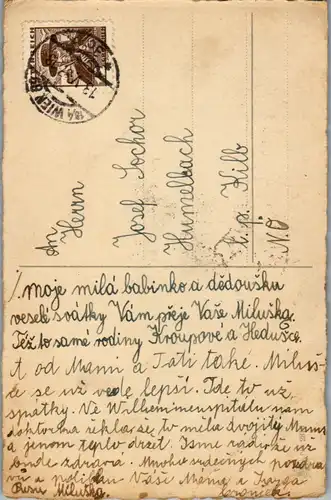 An
Herrn
Josef Sochor
Hummelbach
l. p. Kilb
N.Ö
Moje milá babinko a dědoušku
veselé svátky Vám přeje Vaše Miluška.
Též to samé rodiny Kroupové a Hedušce
A od Mami a Tati také. Miluš-
ce se už vede lepší. Jde to už
zpátky. Ve Wilheminenspitálu nám
doktorka řekla že to měla dvojitý Mums
a jenom teplo držet. Jsme rádi že už
bude zdravá. Mnoho srdečných pozdra
vů a políbení Vaše Mama a
Pusu Miluška